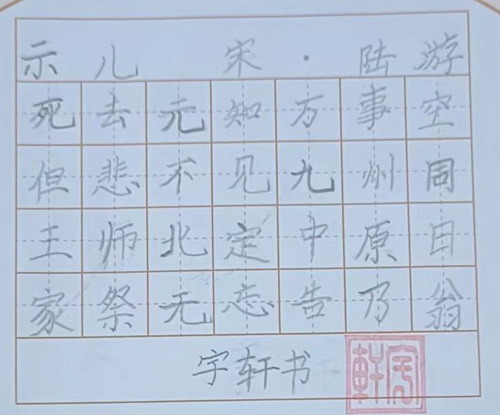 示儿 宋·陆游
死去元知万事空
但悲不见九州同
王师北定中原日
家祭无忘告乃翁
宇轩书
宇軒